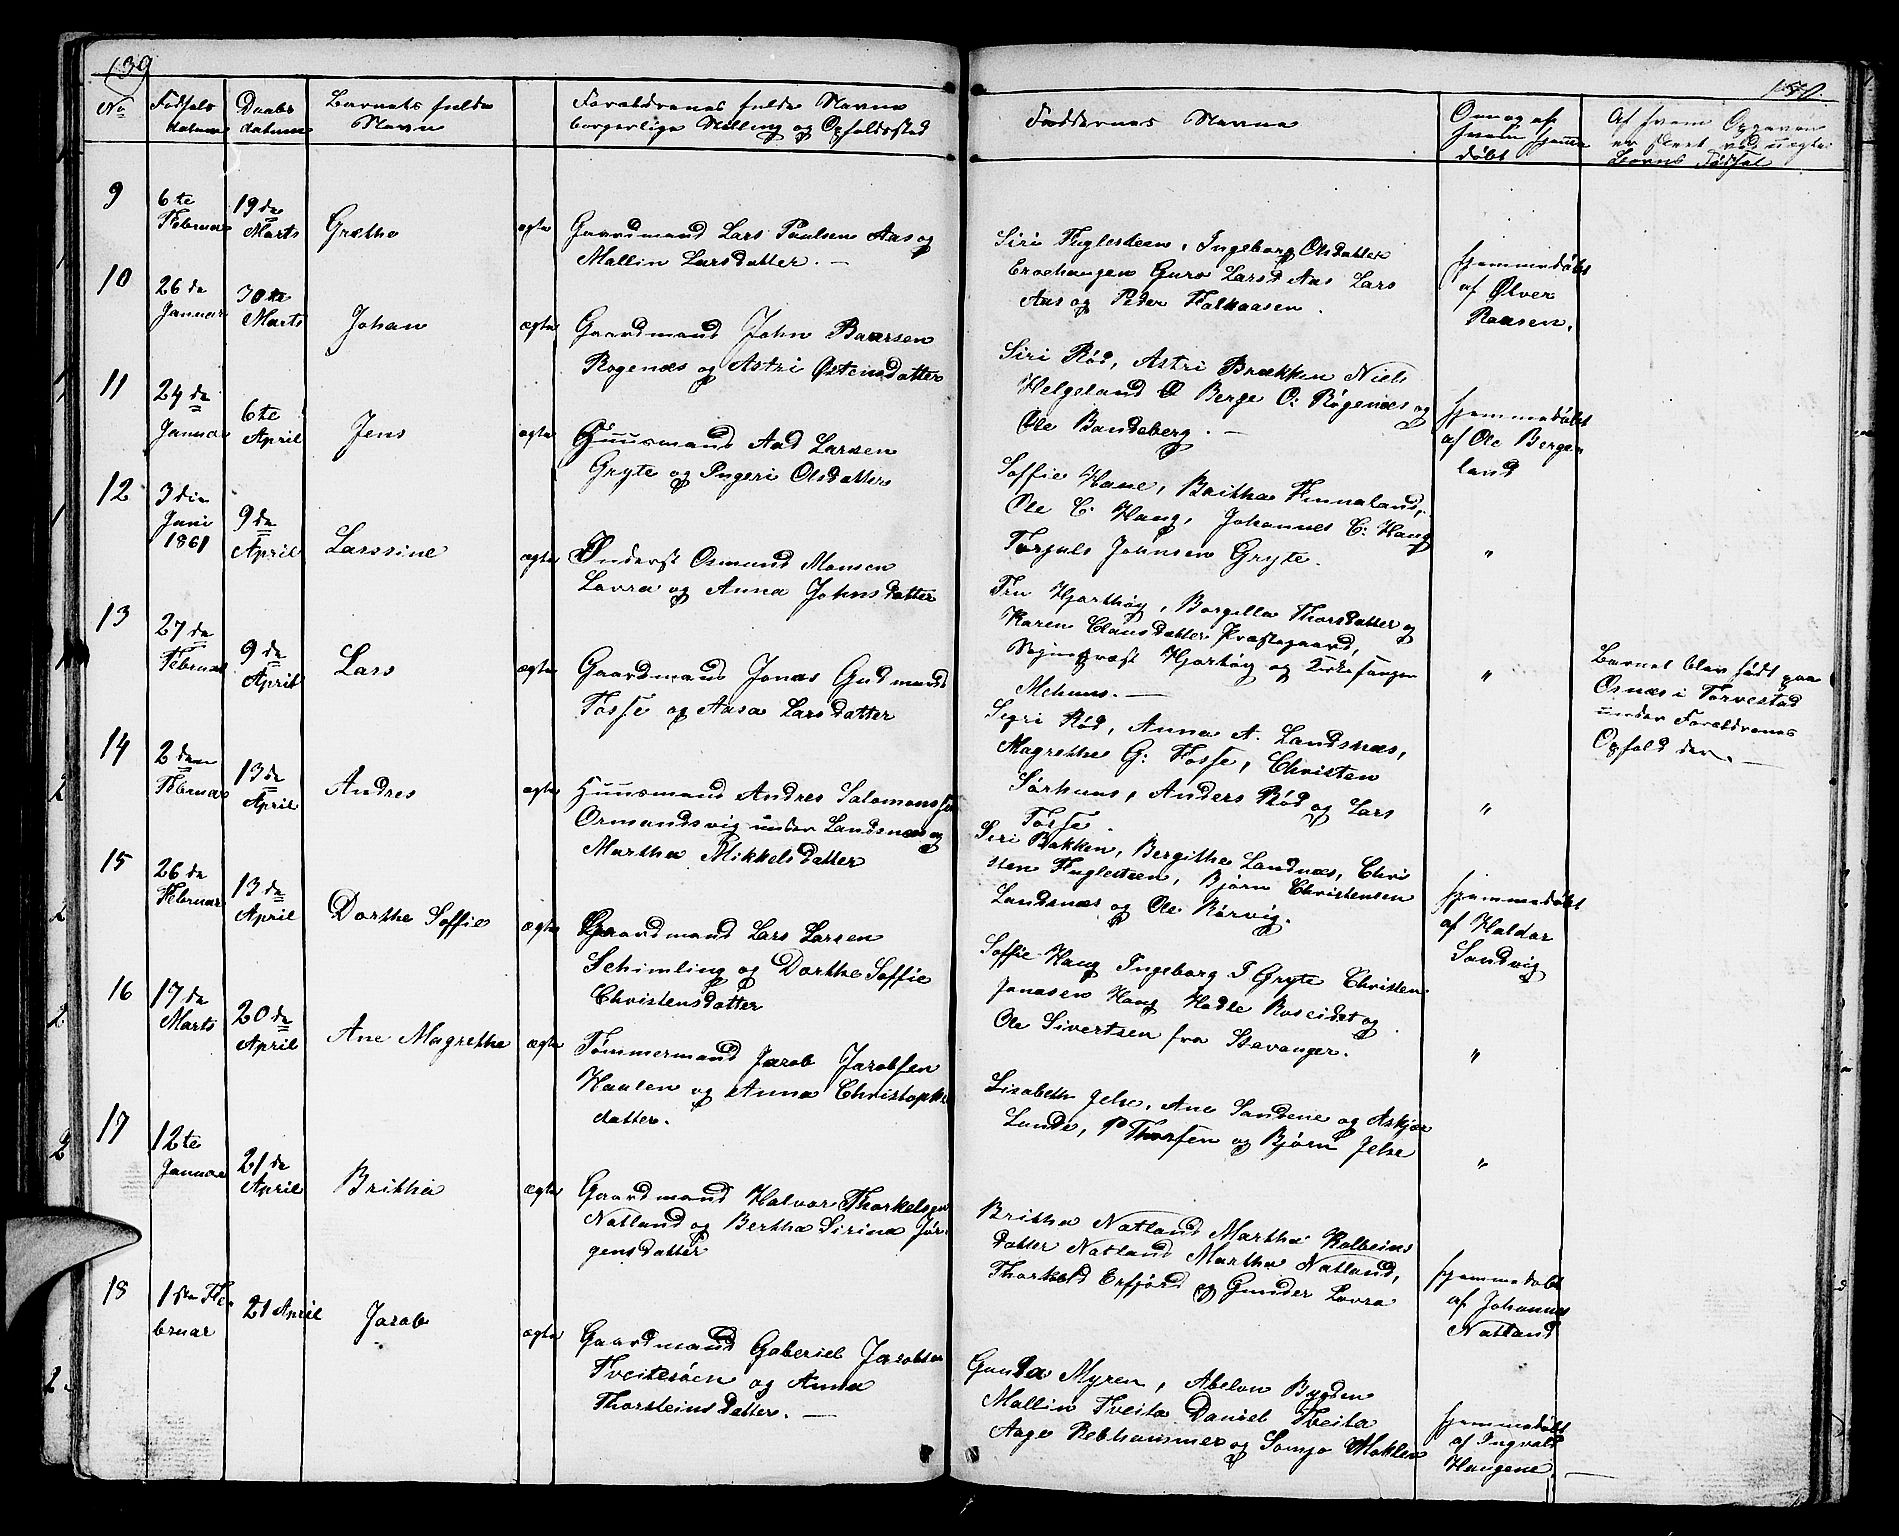 139
No
Fødsels
datum
Daabs
datum
Barnets fulde
Navn
Forældrenes fulde Navne
borgerlige Stilling og Opholdssted
Faddernes Navne
Om og af
hvem hjemme
døbt
Af hvem Opgaven
er skeet ved uægte
Børns Fødsel
9
6te
Februar
19de
Marts
Grethe
ægte
Gaardmand Lars Paulsen Aas og
Mallin Larsdatter. —
Siri Fuglesteen, Ingeborg Olsdatter
Guro Larsd Aas Lars
Aas og Peder Falkaasen.
hjemmedøbt
af Ølver
Raasen.
10
26de
Januar
30te
Marts
Johan
ægte
Gaardmand John Baarsen
Rogenæs og Astri Østensdatter
Siri Rød, Astri Brækken Niels
Helgeland Ø Berge O: Røgenæs og
Ole Bandeberg. —
hjemmedøbt
af Ole Berge
land
11
24de
Januar
6te
April
Jens
ægte
Huusmand Aad Larsen
Gryte og Ingeri Olsdatter
Soffie Hane, Britha Finnaland,
Ole C. Haug, Johannes C: Haug
Torjuls Johnsen Gryte.
"
12
3die
Juni
1861
9de
April
Larssine
ægte
Inderst Osmund Monsen
Lovra og Anna Johnsdatter
Fru Hjorthøy, Borgilla Thorsdatter og
Karen Clausdatter Præstegaard,
Sognepræst Hjorthøy og Kirkesanger
Mehuus. —
"
Barnet blev født paa
Osnæs i Torvestad
under Forældrenes
Ophold der. —
13
27de
Februar
9de
April
Lars
ægte
Gaardmand Jonas Gudmunds
Fosse og Aasa Larsdatter
Segri Rød, Anna A. Landsnæs,
Magrethe G: Fosse, Christen
Sørhuus, Anders Rød og Lars
Fosse.
"
14
2den
Februar
13de
April
Andres
ægte
Huusmand Andres Salomonsen
Ormandsvig under Landsnæs og
Martha Mikkelsdatter
Siri Bakken, Bergithe Landnæs, Chri
sten Fuglesteen, Bjørn Christensen
Landsnæs og Ole Rørvig.
hjemmedøbt
af Haldor
Sandvig
15
26de
Februar
13de
April
Dorthe Soffie
ægte
Gaardmand Lars Larsen
Schimling og Dorthe Soffie
Christensdatter
Soffie Haug Ingeborg T Gryte Christen
Jonasen Haug Hadle Roseidet og
Ole Sivertsen fra Stavanger.
"
16
17de
Marts
20de
April
Ane Magrethe
ægte
Tømmermand Jacob Jacobsen
Haalen og Anna Christophe
datter.
Lisabeth Jelse, Ane Sandene og Askjær
Lunde, P Thorsen og Bjørn Jelse
"
17
12te
Januar
21de
April
Britha
ægte
Gaardmand Halvor Thorkelsen
Natland og Bertha Sirina Jør
gensdatter
Britha Natland Martha Kolbeins
datter Natland Martha Natland,
Thorkeld Erfjord og Gunder Lovra
hjemmedøbt
af Johannes
Natland
18
1ste Fe
bruar
21 April
Jacob
ægte
Gaardmand Gaberiel Jacobsen
Tveitesøen og Anna
Thorsteinsdatter. —
Gunda Myren, Abelon Bygden
Mallin Tveita Daniel Tveita
Aage Rebhammer og Samso Mokler
hjemmedøbt
af Ingvald
Haugene. —